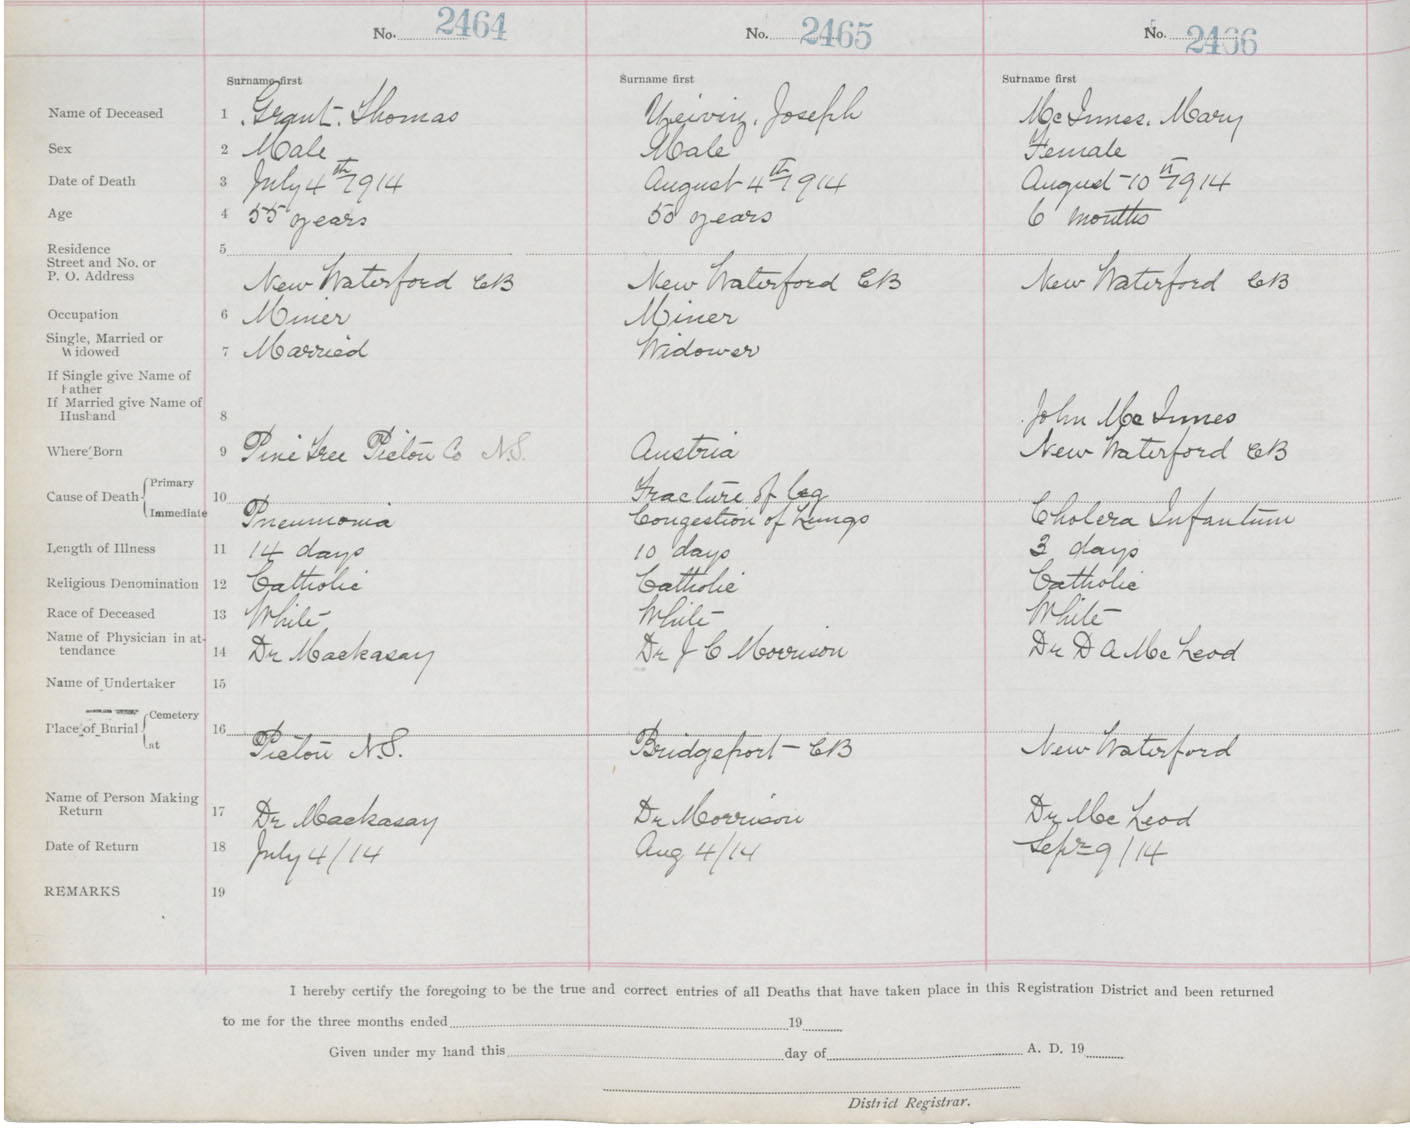 No. 2464 No. 2465 No. 2466
Surname first Surname first Surname first
Name of Deceased 1 Grant. Thomas Joseph McInnes. Mary
Sex 2 Male Male Female
Date of Death 3 July 4th 1914 August 4th 1914 August 10th 1914
Age 4 55 years 50 years 6 months
Residence 5
Street and No. or
P. O. Address New Waterford CB New Waterford CB New Waterford CB
Occupation 6 Miner Miner
Single, Married or
Widowed 7 Married Widower
If Single give Name of
Father
If Married give Name of
Husband 8 John McInnes
Where Born 9 Pine Tree Pictou Co N.S. Austria New Waterford CB
Cause of Death Primary 10 Fracture of leg
Immediate Pneumonia Congestion of Lungs Cholera Infantum
Length of Illness 11 14 days 10 days 3 days
Religious Denomination 12 Catholic Catholic Catholic
Race of Deceased 13 White White White
Name of Physician in at-
tendance 14 Dr Mackasay Dr J C Morrison Dr D A McLeod
Name of Undertaker 15
Place of Burial Cemetery 16
at Pictou N.S. Bridgeport CB New Waterford
Name of Person Making
Return 17 Dr Mackasay Dr Morrison Dr McLeod
Date of Return 18 July 4/14 Aug 4/14 Sepr 9/14
REMARKS 19
I hereby certify the foregoing to be the true and correct entries of all Deaths that have taken place in this Registration District and been returned
to me for the three months ended 19
Given under my hand this day of A. D. 19
District Registrar.